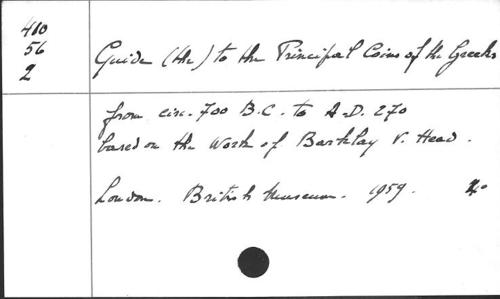 410
56
2
Guide (the) to the Principal Coins of the Greeks
from circ. 700 B.C. to A.D. 270
based on the Work of Barklay V. Head.
London. British Museum. 1959. 4o